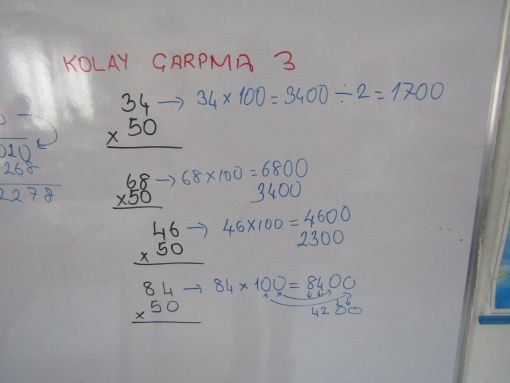 KOLAY ÇARPMA 3
34 → 34 × 100 = 3400 ÷ 2 = 1700
× 50
68 → 68 × 100 = 6800
×50 3400
46 → 46 × 100 = 4600
× 50 2300
84 → 84 × 100 = 8400
× 50 4200
268
2278